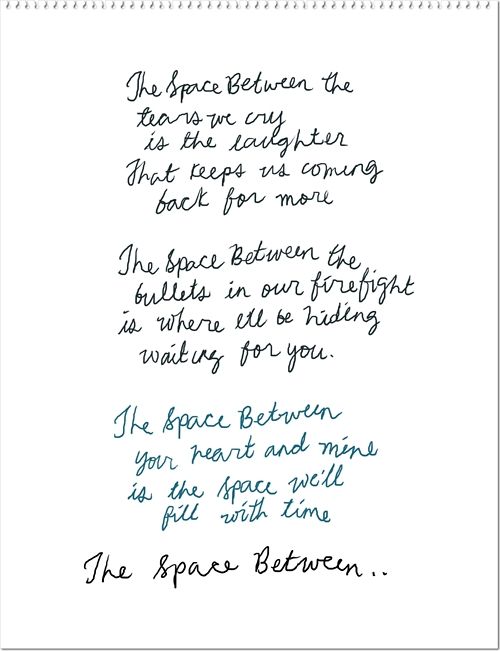 The Space Between the
tears we cry
is the laughter
That keeps us coming
back for more
The Space Between the
bullets in our firefight
is where ill be hiding
waiting for you.
The Space Between
your heart and mine
is the space we'll
fill with time
The Space Between..